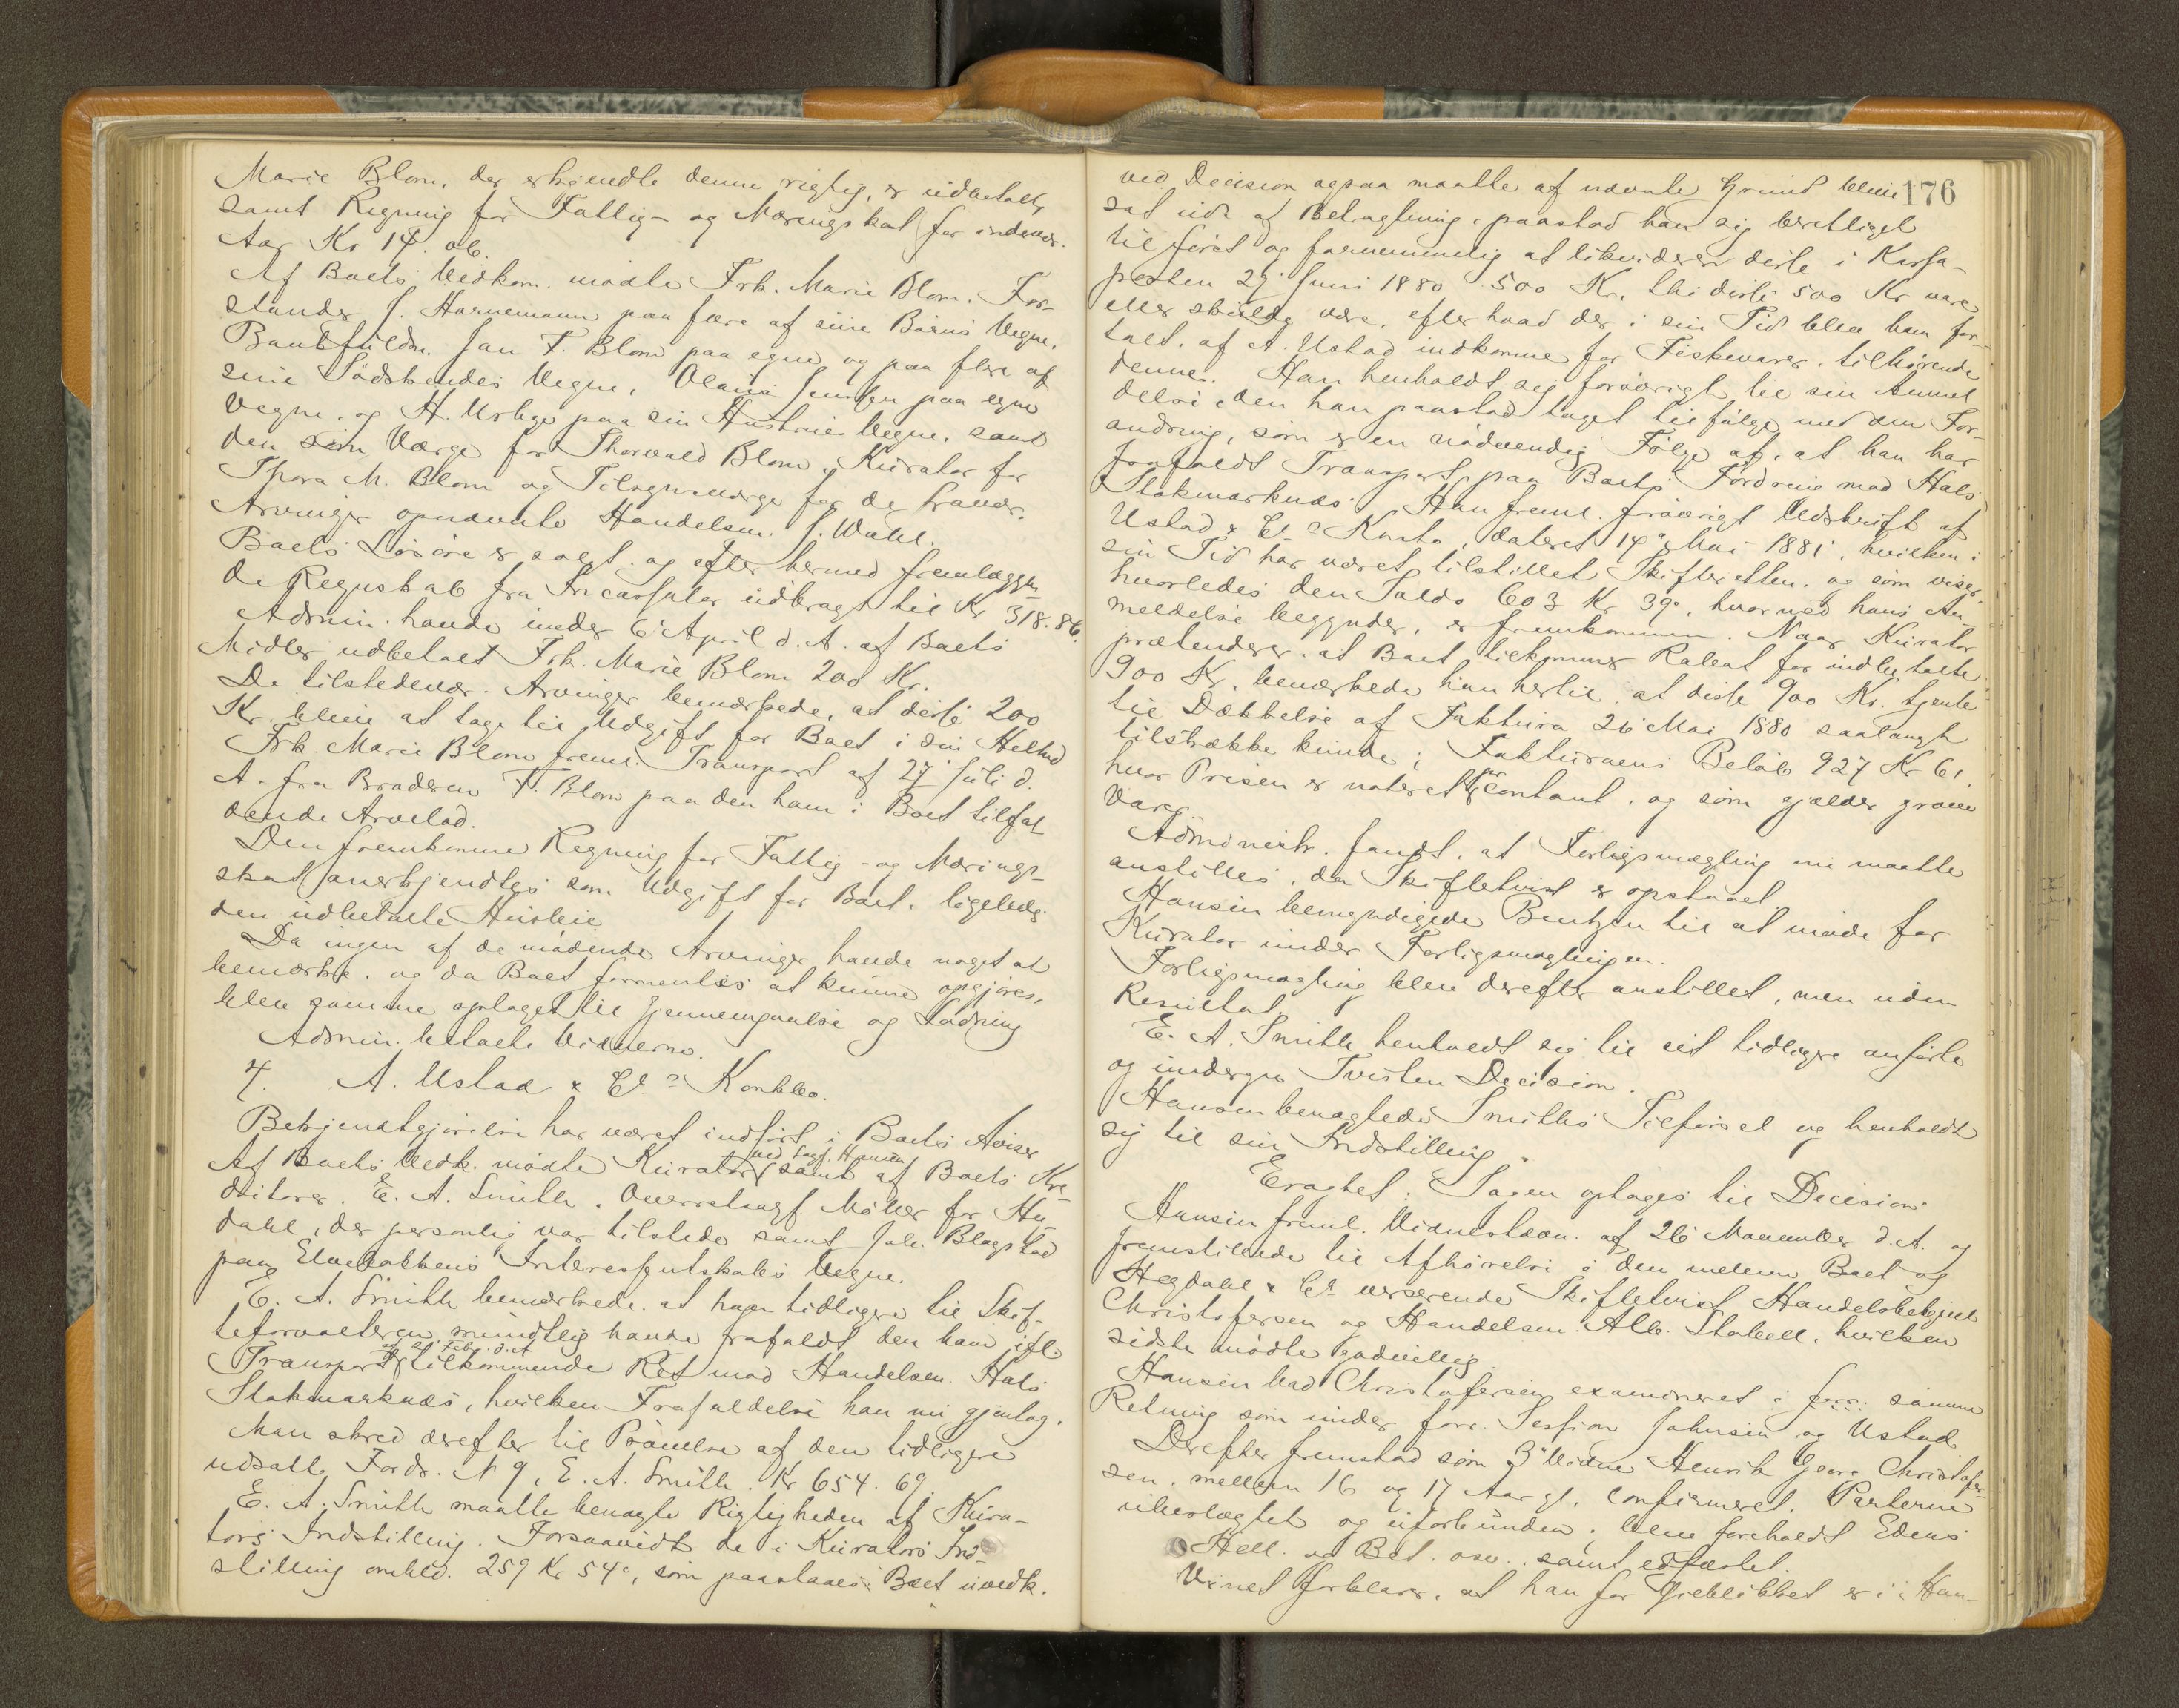 Marie Blom, der erkjendte denne rigtig, er udbetalt,
samt Regning for Fattig- og Næringsskat for indevær.
Aar Kr 14.06.
Af Boets Vedkom. mødte Frk. Marie Blom. For-
stander J. Hornemann paa fære af sine Børns Vegne,
Bankfuldm. Jan F. Blom paa egne og paa flere af
sine Sødskendes Vegne, Olaus Jenssen paa egne
Vegne, og H. Urbye paa sin Hustrues Vegne, samt
den som Værge for Thorvald Blom, Kurator for
Thora M. Blom og Tilsynsværge for de fravær.
Arvinger opnævnte Handelsm. J. Wahl.
Boets Løsøre er solgt og efter hermed fremlæggen-
de Regnskab fra Incassator udbragt til Kr 318.86.
Admin. havde under 6' April d. A. af Boets
Midler udbetalt Frk. Marie Blom 200 Kr.
De tilstedevær. Arvinger bemærkede, at disse 200
Kr. blive at tage til Udgift for Boet i sin Helhed
Frk. Marie Blom freml. Transport af 27' Juli d.
A. fra Broderen F. Blom paa den ham i Boet tilfal-
dende Arvelod.
Den fremkomne Regning for Fattig- og Nærings-
skat anerkjendtes som Udgift for Boet, ligeledes
den udbetalte Husleie.
Da ingen af de mødende Arvinger havde noget at
bemærke, og da Boet formentes at kunne opgjøres,
blev samme optaget til Gjennemgaaelse og Lodning
Admin. betalte Vidnerne.
7. A. Ustad & Co Konkbo.
Bekjendtgjørelse har været indført i Boets Aviser
Af Boets Vedk. mødte Kurator ved Sagf. Hansen samt af Boets Kre-
ditorer. E. A. Smith. Overretssagf. Møller for Heg-
dahl, der personlig var tilstede samt Joh. Blagstad
paa Elvebakkens Interessentskabs Vegne.
E. A. Smith bemærkede, at han tidligere til Skif-
teforvalteren mundtlig havde frafaldt den ham ifl.
Transport af 21 Febr. d. A. tilkommende Ret mod Handelsm. Hals
Stokmarknæs, hvilken Frafaldelse han nu gjentog.
Man skred derefter til Prøvelse af den tidligere
udsatte Fordr. N 9, E. A. Smith. Kr 654.69.
E. A. Smith maatte benægte Rigtigheden af Kura-
tors Indstilling. Forsaavidt de i Kurators Ind-
stilling omhld. 259 Kr 54 ø, som paastaaes Boet uvedk.
176
ved Decision ogsaa maatte af nævnte Grund blive
sat ud af Betragtning, paastod han sig berettiget
til først og fornemmelig at likvidere disse i Kassa-
posten 29' Juni 1880 500 Kr. thi disse 500 Kr vare
eller skulde være, efter hvad der i sin Tid blev ham for-
talt, af A. Ustad indkomne for Fiskevarer, tilhørende
denne. Han henholdt sig forøvrigt til sin Anmel-
delse, den han paastod taget tilfølge med den For-
andring, som er en nødvendig Følge af, at han har
frafaldt Transport paa Boets Fordring mod Hals
Stokmarknæs. Han freml. forøvrigt Udskrift af
Ustad & Co Konto, dateret 14' Mai 1881, hvilken i
sin Tid har været tilstillet Skifteretten, og som viser,
hvorledes den Saldo 603 Kr 39 ø, hvormed hans An-
meldelse begynder, er fremkommen. Naar Kurator
prætenderer, at Boet tilkommer Rabat for indbetalte
900 Kr. bemærkede han hertil, at disse 900 Kr. tjente
til Dækkelse af Faktura 26' Mai 1880 saalangt
tilstrække kunde; Fakturaens Beløb 927 Kr 61,
hvor Prisen er noteret pr contant, og som gjælder grove
Varer.
Administr. fandt, at Forligsmægling nu maatte
anstilles, da Skiftetvist er opstaaet.
Hansen bemyndigede Bentzen til at møde for
Kurator under Forligsmæglingen.
Forligsmægling blev derefter anstillet, men uden
Resultat.
E. A. Smith henholdt sig til sit tidligere anførte
og undergav Tvisten Decision.
Hansen benægtede Smiths Tilførsel og henholdt
sig til sin Indstilling.
Eragtet: Sagen optages til Decision.
Hansen freml. Vidnestævn. af 26' November d. A. og
fremstillede til Afhørelse i den mellem Boet og
Hegdahl & Co verserende Skiftetvist Handelsbetjent
Christofersen og Handelsm. Alb. Stabell, hvilken
sidste mødte godvillig.
Hansen bad Christofersen examineret i samme
Retning som under forr. Session Johnsen og Ustad
Derefter fremstod som 3' Vidne Henrik Georg Christofer-
sen, mellem 16 og 17 Aar gl. confirmeret. Parterne
ubeslægtet og uforbunden. Blev foreholdt Edens
Hell. og Bet. osv. samt edfæstet.
Vidnet forklarer, at han for Øieblikket er i Han-